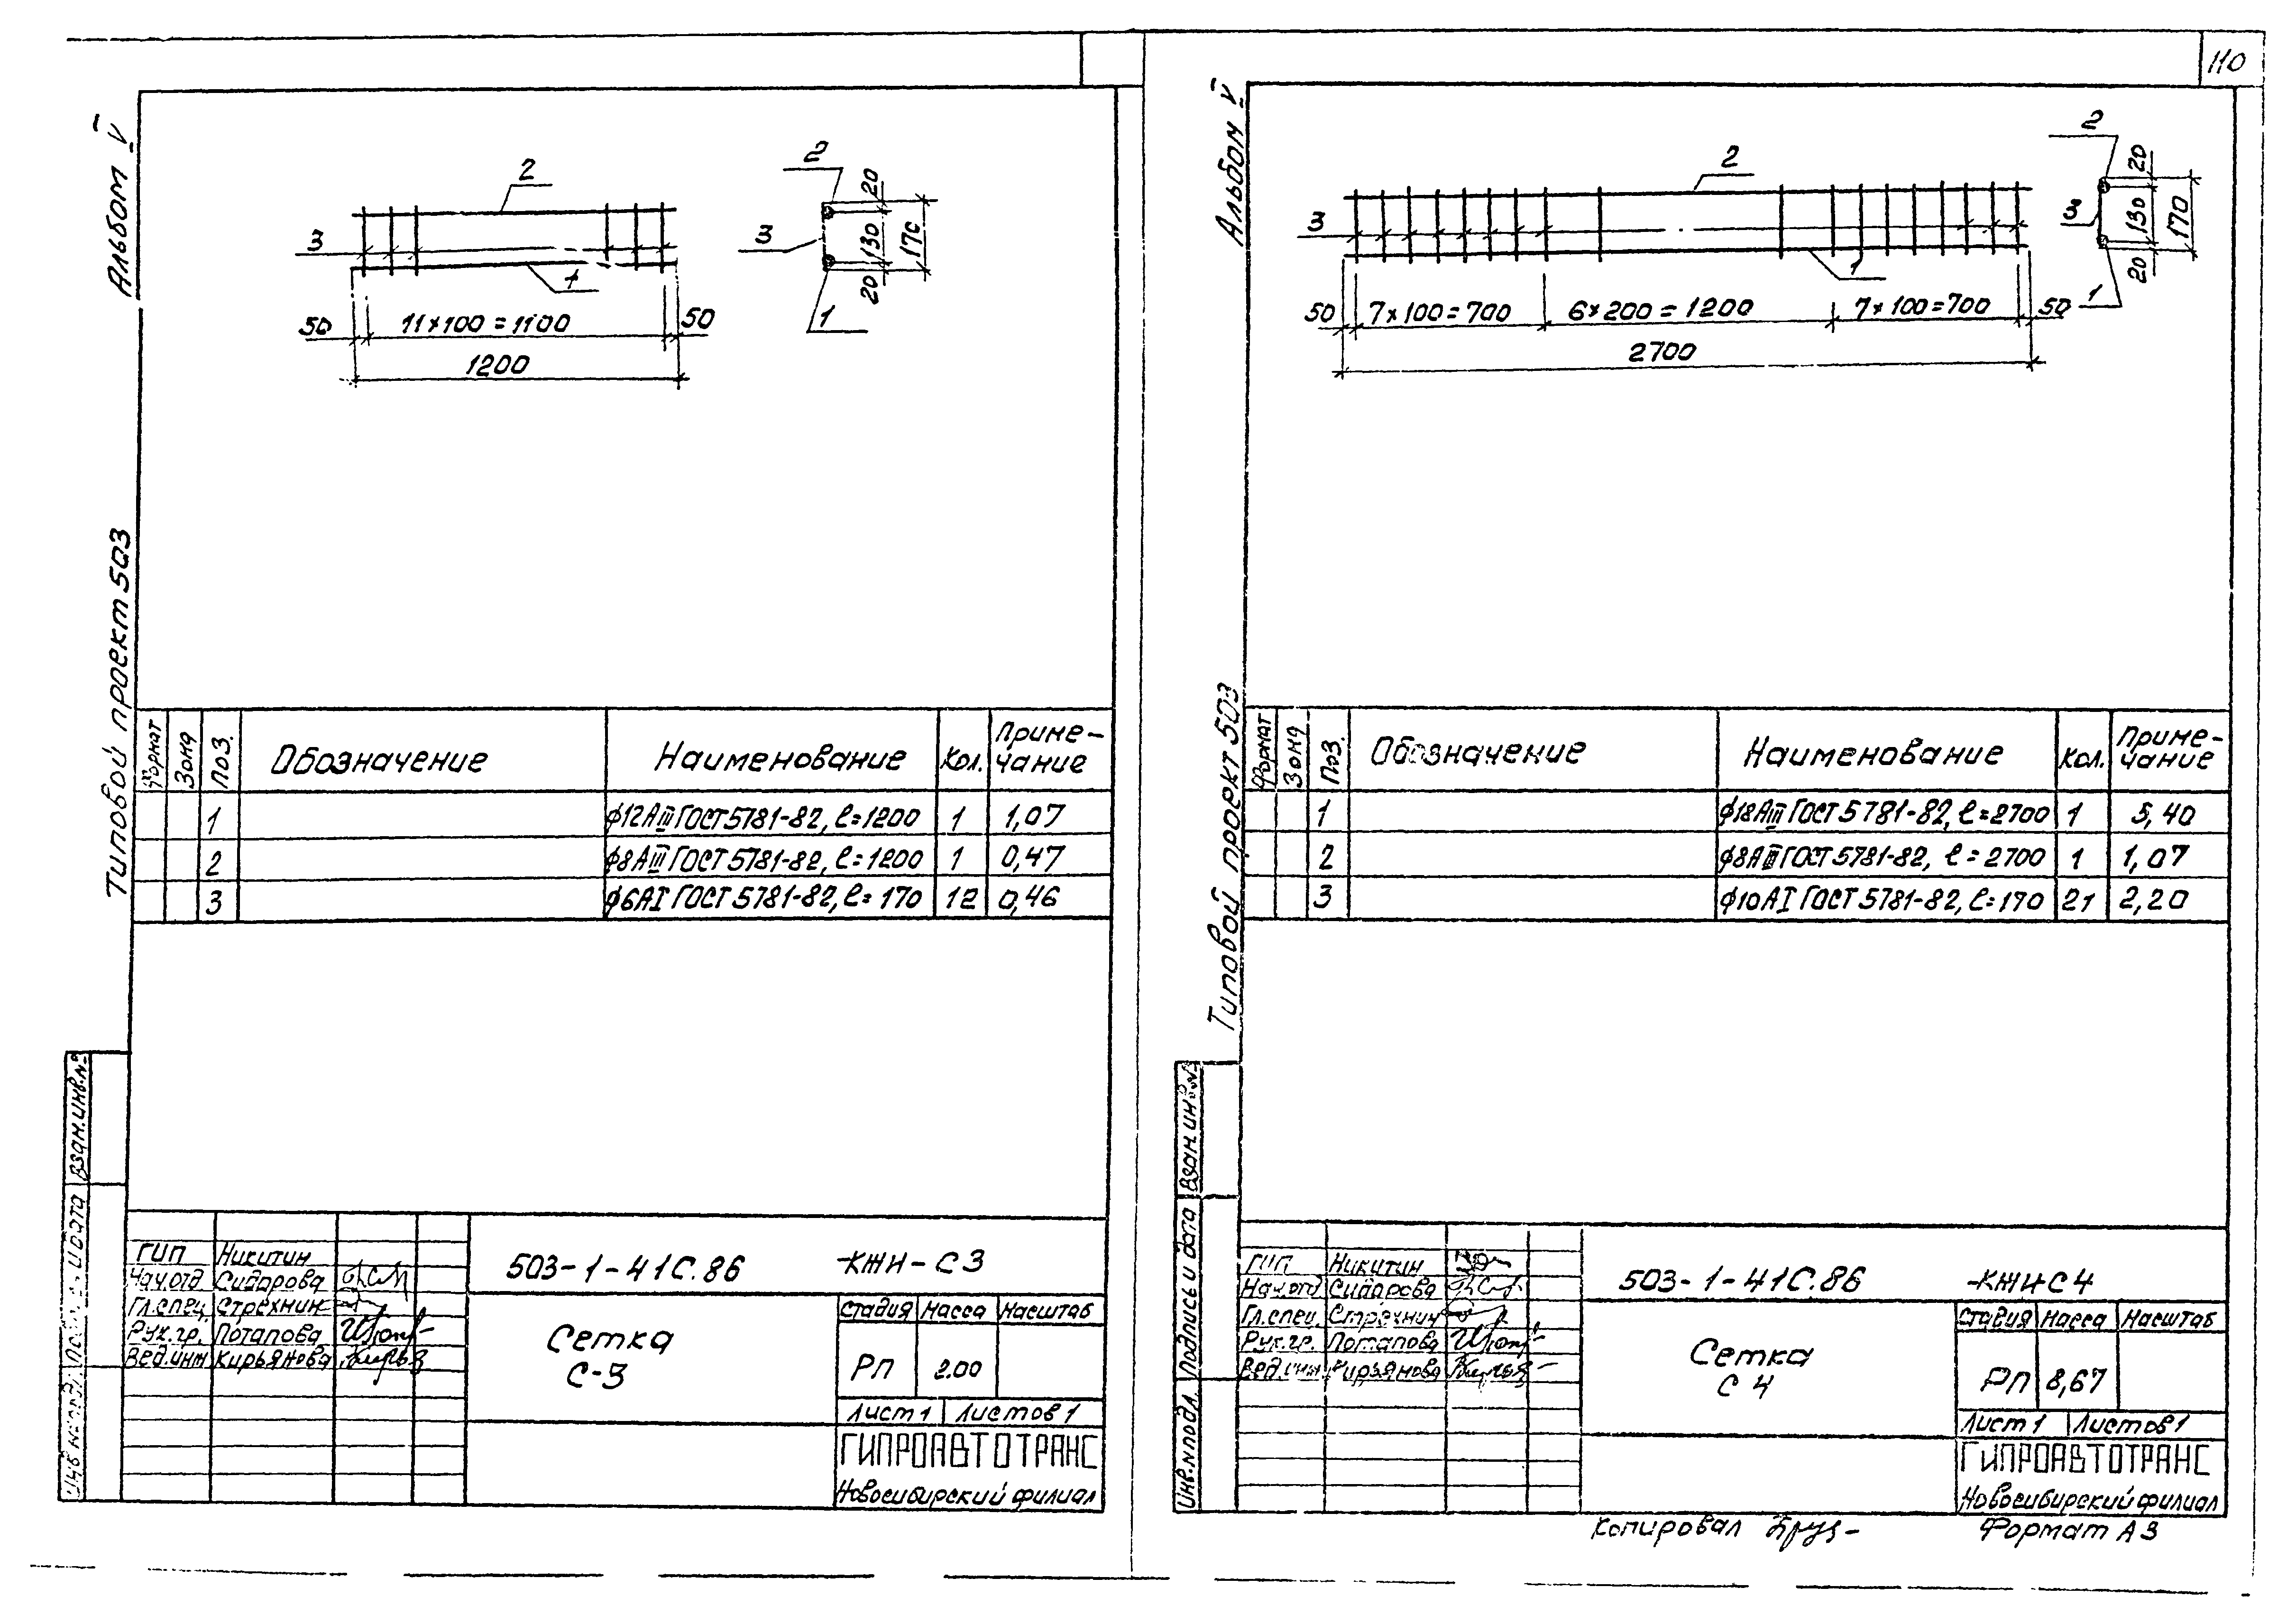 110
Альбом V
Типовой проект 503
2
3
1
50
11×100=1100
50
1200
2
3
1
20
130
20
170
Формат
Зона
Поз.
Обозначение
Наименование
Кол.
Приме-
чание
1 ϕ12АIII ГОСТ 5781-82, ℓ=1200 1 1,07
2 ϕ8АIII ГОСТ 5781-82, ℓ=1200 1 0,47
3 ϕ6АI ГОСТ 5781-82, ℓ=170 12 0,46
Взам.инв.№
ГИП Никитин
Нач.отд Сидорова
Гл.спец. Стрехнин
Рук.гр. Потапова
Вед.инж Кирьянова
503-1-41С.86 -КЖИ-С3
Сетка
С-3
Стадия Масса Масштаб
РП 2.00
Лист 1 Листов 1
ГИПРОАВТОТРАНС
Новосибирский филиал
Альбом V
Типовой проект 503
2
3
1
50
7×100=700
6×200=1200
7×100=700
50
2700
2
3
1
20
130
20
170
Формат
Зона
Поз.
Обозначение
Наименование
Кол.
Приме-
чание
1 ϕ18АIII ГОСТ 5781-82, ℓ=2700 1 5,40
2 ϕ8АIII ГОСТ 5781-82, ℓ=2700 1 1,07
3 ϕ10АI ГОСТ 5781-82, ℓ=170 21 2,20
Взам.инв.№
Подпись и дата
Инв.№подл.
ГИП Никитин
Нач.отд Сидорова
Гл.спец. Стрехнин
Рук.гр. Потапова
Вед.инж Кирьянова
503-1-41С.86 -КЖИ С4
Сетка
С 4
Стадия Масса Масштаб
РП 8,67
Лист 1 Листов 1
ГИПРОАВТОТРАНС
Новосибирский филиал
Копировал
Формат А3